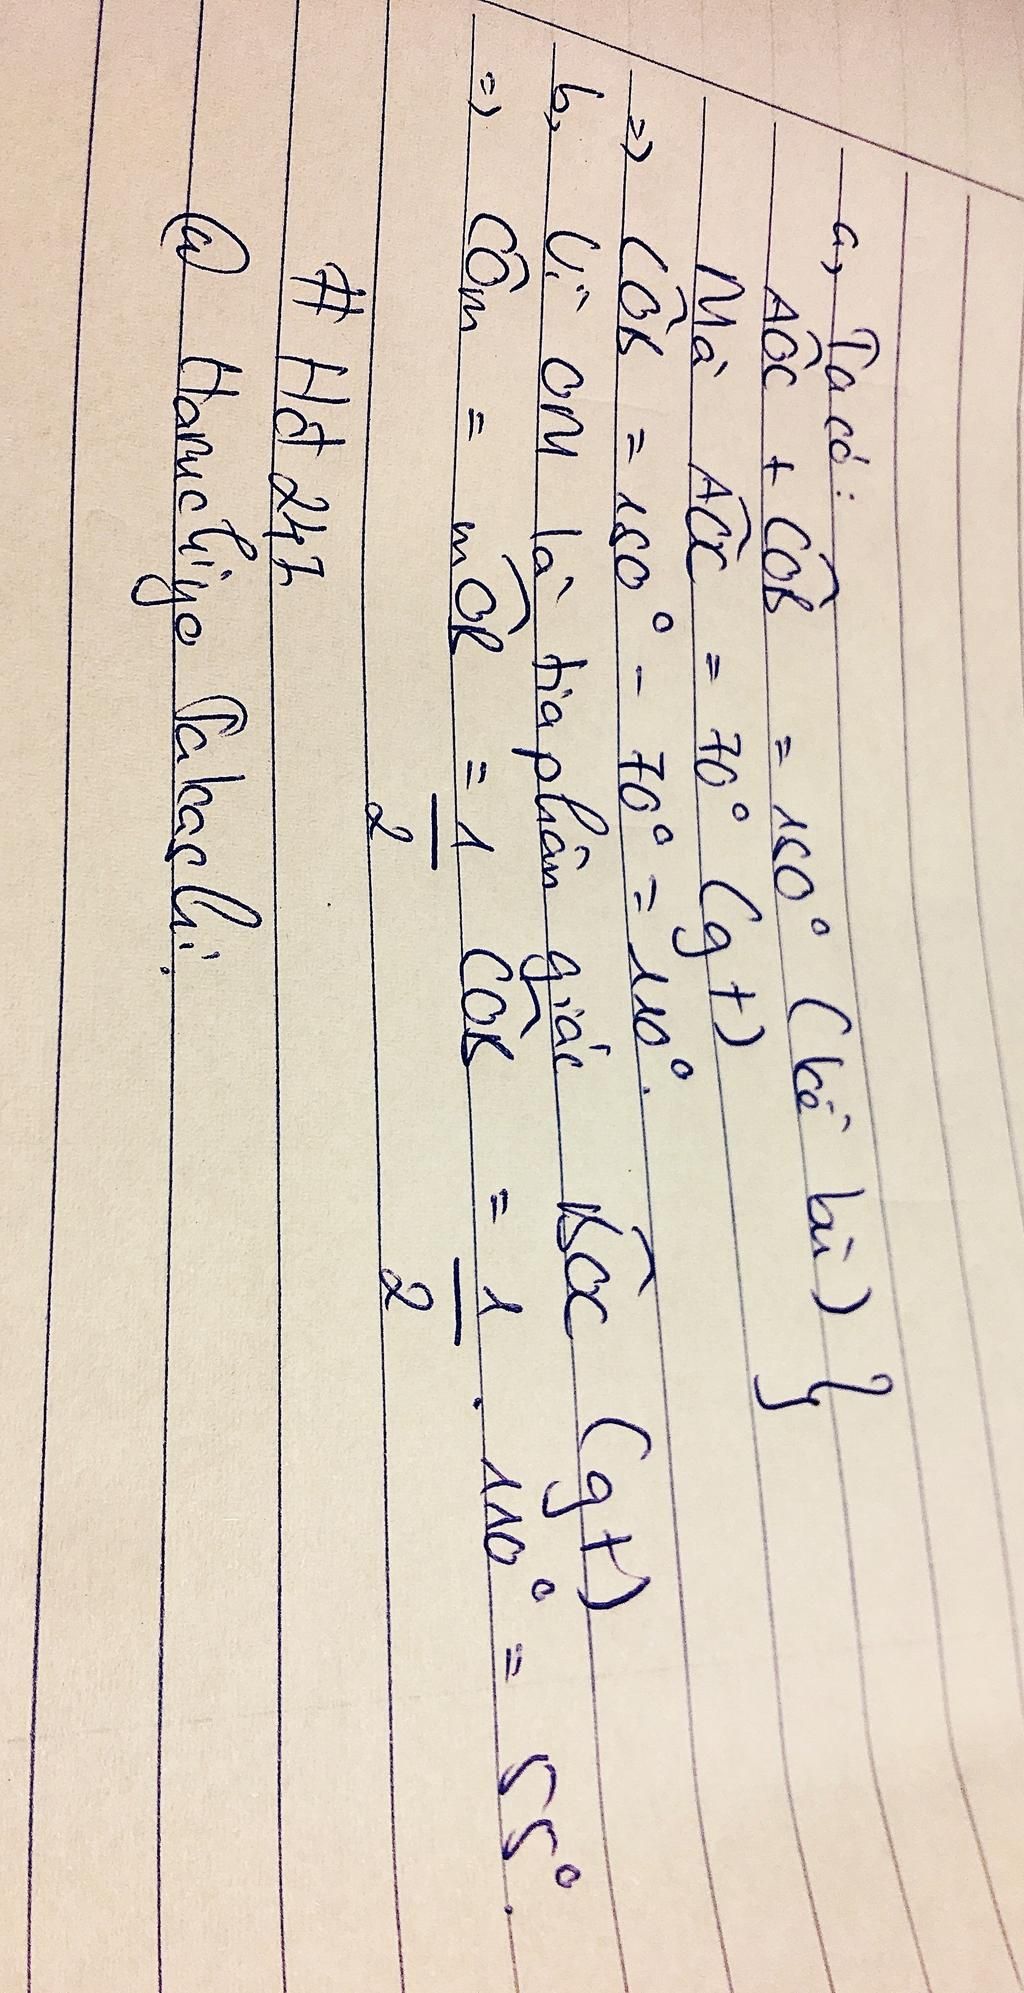 a, Ta có:
AÔC + CÔB = 180° (kề bù) }
Mà AÔC = 70° (gt)
=> CÔB = 180° - 70° = 110°.
b, Vì OM là tia phân giác BÔC (gt)
=> CÔM = MÔB = 1/2 CÔB = 1/2 . 110° = 55°.
# Hđ 247
@ Haruchiyo Takashi.